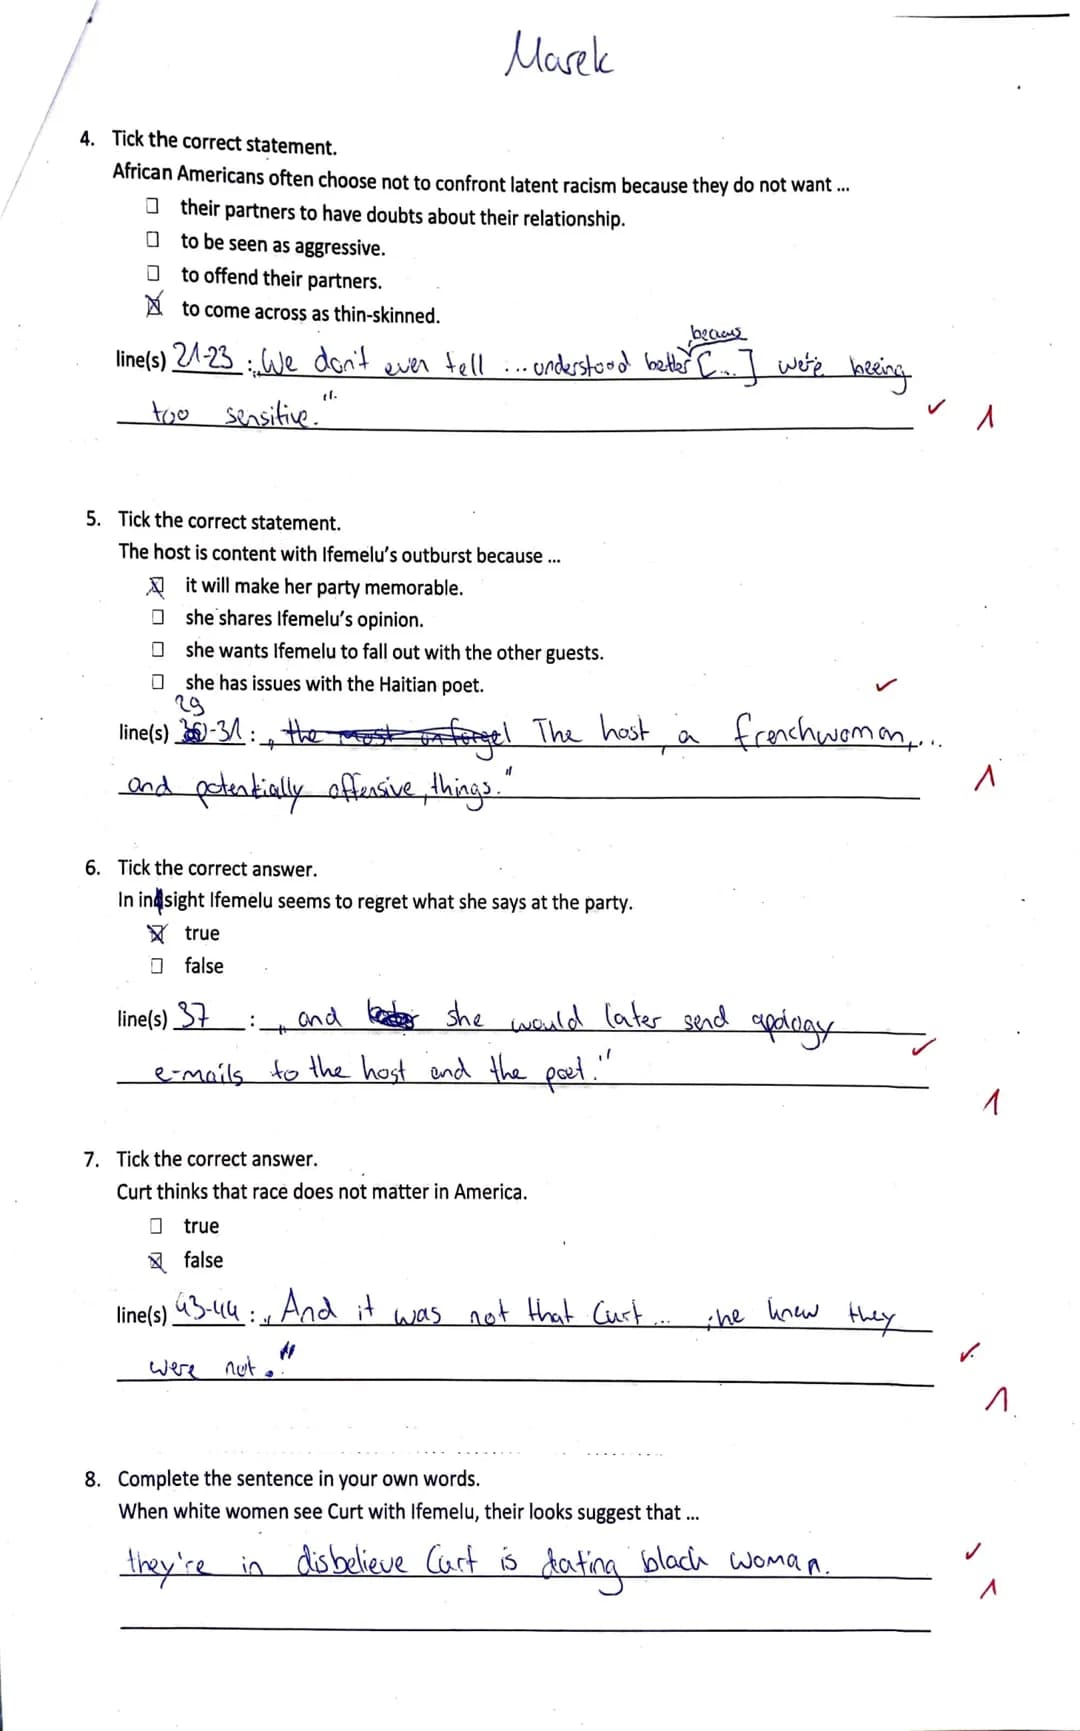 Marek
4. Tick the correct statement.
African Americans often choose not to confront latent racism because they do not want ...
☐ their partners to have doubts about their relationship.
☐ to be seen as aggressive.
☐ to offend their partners.
☒ to come across as thin-skinned.
becaus
line(s) 21-23 : „We don't even tell ... understood better [...] we're beeing
too sensitive."
✓ 1
5. Tick the correct statement.
The host is content with Ifemelu's outburst because ...
☒ it will make her party memorable.
☐ she shares Ifemelu's opinion.
☐ she wants Ifemelu to fall out with the other guests.
☐ she has issues with the Haitian poet.
✓
29
line(s) -31 : „ The host, a frenchwoman, ...
and potentially offensive, things."
1
6. Tick the correct answer.
In insight Ifemelu seems to regret what she says at the party.
☒ true
☐ false
line(s) 37 : „ and she would later send apology
e-mails to the host and the poet."
✓
1
7. Tick the correct answer.
Curt thinks that race does not matter in America.
☐ true
☒ false
line(s) 43-44 : „And it was not that Curt ... ; he knew they
were not."
✓
1
8. Complete the sentence in your own words.
When white women see Curt with Ifemelu, their looks suggest that ...
they're in disbelieve Curt is dating black woman.
✓
1